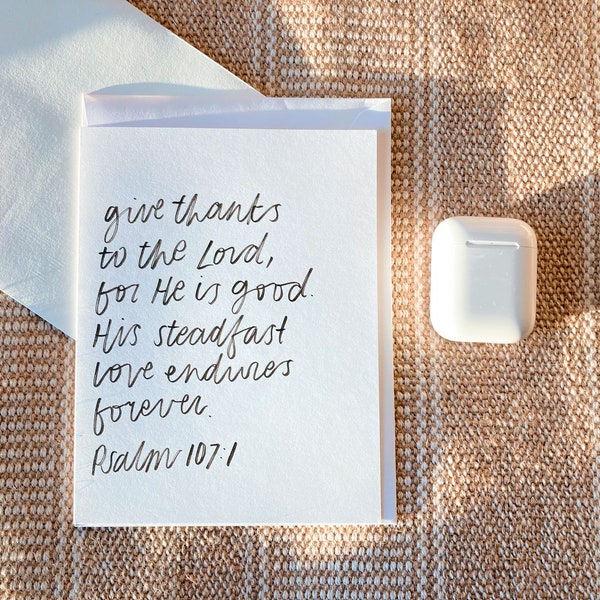 give thanks
to the Lord,
for He is good.
His steadfast
love endures
forever.
Psalm 107:1